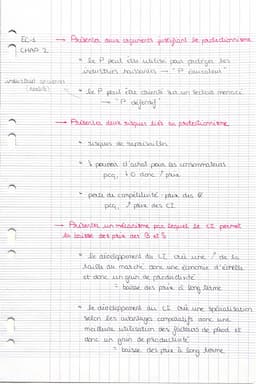 EC-1
CHAP 2
→ Présenter deux arguments justifiant le protectionnisme
• le P peut être utilisé pour protéger les
industries naissantes → "P éducateur"
• le P peut être orienté sur un secteur menacé
→ "P défensif"
→ Présenter deux risques liés au protectionnisme
• risques de représailles
• ↓ pouvoir d'achat pour les consommateurs
pcq, ↓ O donc ↑ prix
• perte de compétitivité-prix des
pcq, ↑ prix des CI
→ Présenter un mécanisme par lequel le CI permet
la baisse des prix des B et S
• le développement du CI crée une ↑ de la
taille du marché donc une économie d'échelle
et donc un gain de productivité
= baisse des prix à long terme
• le développement du CI crée une spécialisation
selon les avantages comparatifs donc une
meilleure utilisation des facteurs de prod et
donc un gain de productivité
= baisse des prix à long terme